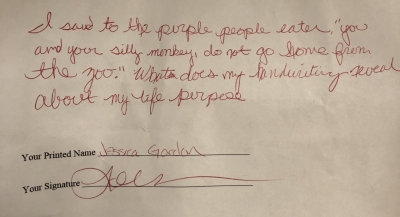 I said to the purple people eater, "you
and your silly monkey, do not go home from
the zoo." What does my handwriting reveal
about my life purpose
Your Printed Name Jessica Gordon
Your Signature